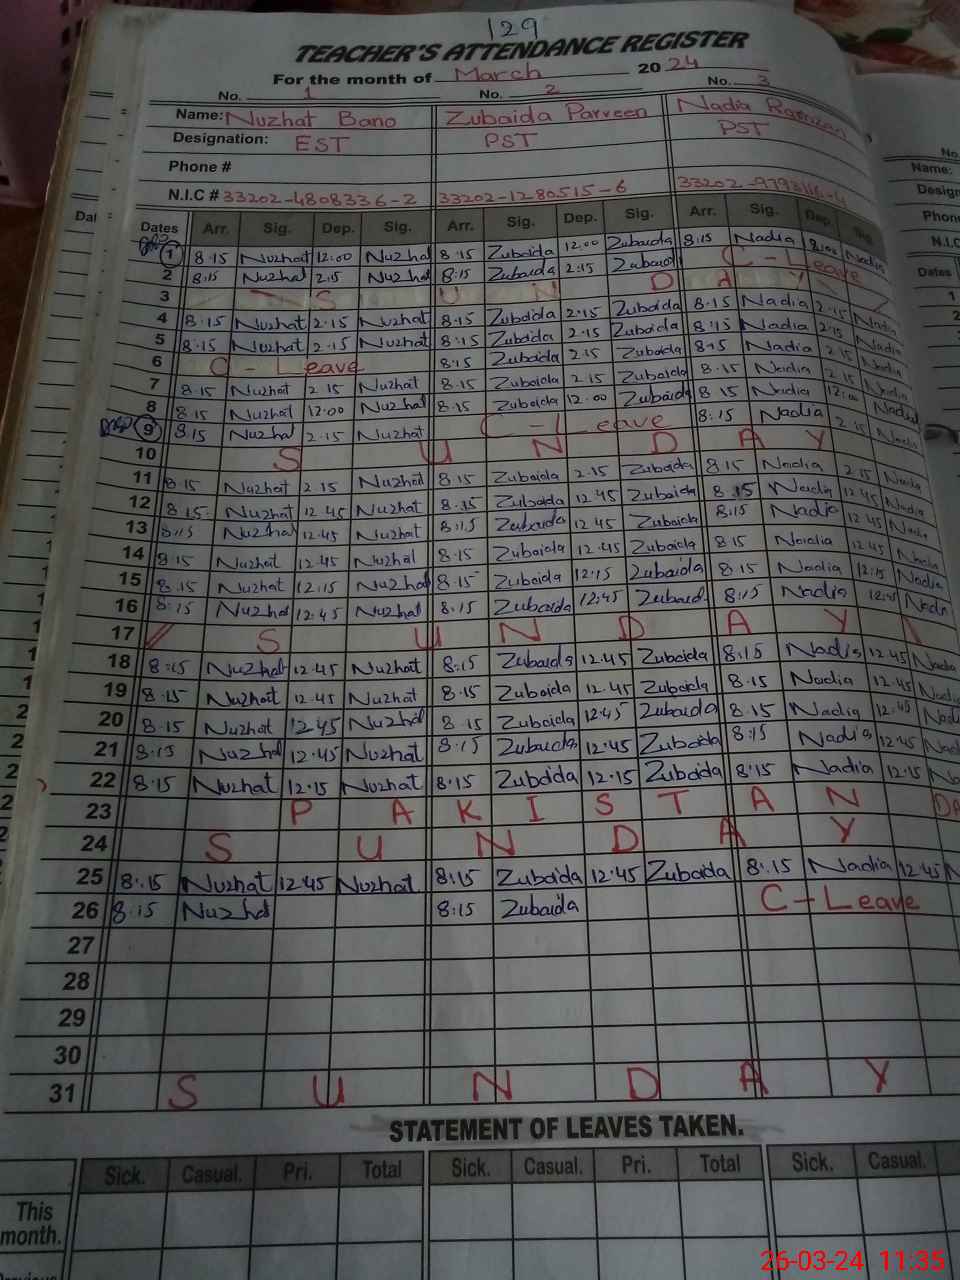 129
TEACHER'S ATTENDANCE REGISTER
For the month of March 2024
No. 1 No. 2 No. 3
Name: Nuzhat Bano Zubaida Parveen Nadia Ramzan
Designation: EST PST PST
Phone #
N.I.C # 33202-4808336-2 33202-1280515-6
Dates Arr. Sig. Dep. Sig. Arr. Sig. Dep. Sig. Arr. Sig. Dep. Sig.
1 8.15 Nuzhat 12.00 Nuzhat 8.15 Zubaida 12.00 Zubaida 8.15 Nadia 12.00 Nadia
2 8:15 Nuzhat 2.15 Nuzhat 8:15 Zubaida 2.15 Zubaida C-Leave
3 S U N D A Y
4 8.15 Nuzhat 2.15 Nuzhat 8.15 Zubaida 2.15 Zubaida 8.15 Nadia 2.15 Nadia
5 8.15 Nuzhat 2.15 Nuzhat 8:15 Zubaida 2.15 Zubaida 8:15 Nadia 2.15 Nadia
6 C-Leave 8:15 Zubaida 2.15 Zubaida 8.15 Nadia 2.15 Nadia
7 8.15 Nuzhat 2.15 Nuzhat 8.15 Zubaida 2.15 Zubaida 8.15 Nadia 2.15 Nadia
8 8:15 Nuzhat 12.00 Nuzhat 8.15 Zubaida 12.00 Zubaida 8.15 Nadia 12:00 Nadia
9 8.15 Nuzhat 2.15 Nuzhat C-Leave 8:15 Nadia 2.15 Nadia
10 S U N D A Y
11 8.15 Nuzhat 2.15 Nuzhat 8.15 Zubaida 2.15 Zubaida 8.15 Nadia 2.15 Nadia
12 8.15 Nuzhat 12.45 Nuzhat 8.15 Zubaida 12.45 Zubaida 8.15 Nadia 12.45 Nadia
13 8:15 Nuzhat 12.45 Nuzhat 8:15 Zubaida 12.45 Zubaida 8:15 Nadia 12.45 Nadia
14 8.15 Nuzhat 12.45 Nuzhat 8.15 Zubaida 12.45 Zubaida 8.15 Nadia 12.45 Nadia
15 8.15 Nuzhat 12.15 Nuzhat 8.15 Zubaida 12.15 Zubaida 8.15 Nadia 12.15 Nadia
16 8:15 Nuzhat 12.45 Nuzhat 8:15 Zubaida 12:45 Zubaida 8:15 Nadia 12:45 Nadia
17 S U N D A Y
18 8:15 Nuzhat 12.45 Nuzhat 8:15 Zubaida 12.45 Zubaida 8:15 Nadia 12.45 Nadia
19 8.15 Nuzhat 12.45 Nuzhat 8.15 Zubaida 12.45 Zubaida 8.15 Nadia 12.45 Nadia
20 8.15 Nuzhat 12.45 Nuzhat 8.15 Zubaida 12.45 Zubaida 8.15 Nadia 12.45 Nadi
21 8:15 Nuzhat 12.45 Nuzhat 8:15 Zubaida 12.45 Zubaida 8:15 Nadia 12.45 Nad
22 8:15 Nuzhat 12.15 Nuzhat 8:15 Zubaida 12.15 Zubaida 8:15 Nadia 12.15 Na
23 P A K I S T A N DA
24 S U N D A Y
25 8:15 Nuzhat 12.45 Nuzhat 8:15 Zubaida 12.45 Zubaida 8:15 Nadia 12.45 N
26 8:15 Nuzhat 8:15 Zubaida C-Leave
27
28
29
30
31 S U N D A Y
STATEMENT OF LEAVES TAKEN.
Sick. Casual. Pri. Total Sick. Casual. Pri. Total Sick. Casual.
This month.
26-03-24 11:35